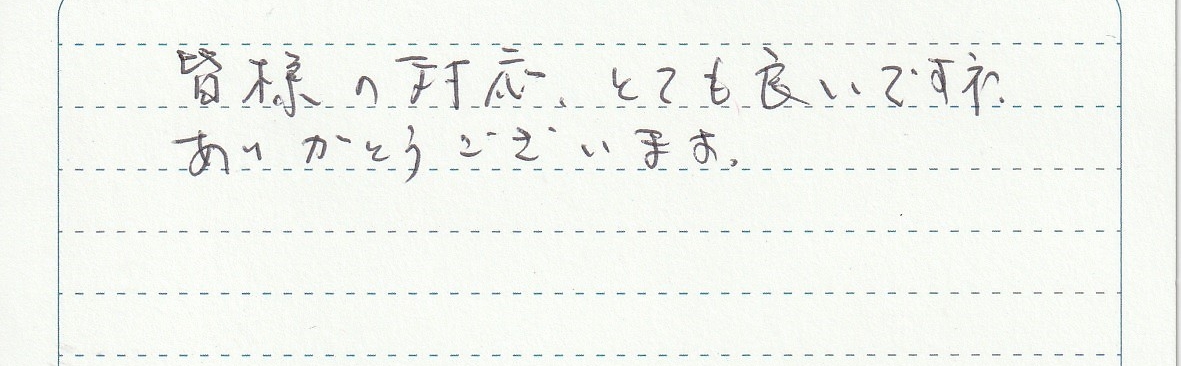 皆様の対応、とても良いですネ.
ありがとうございます。